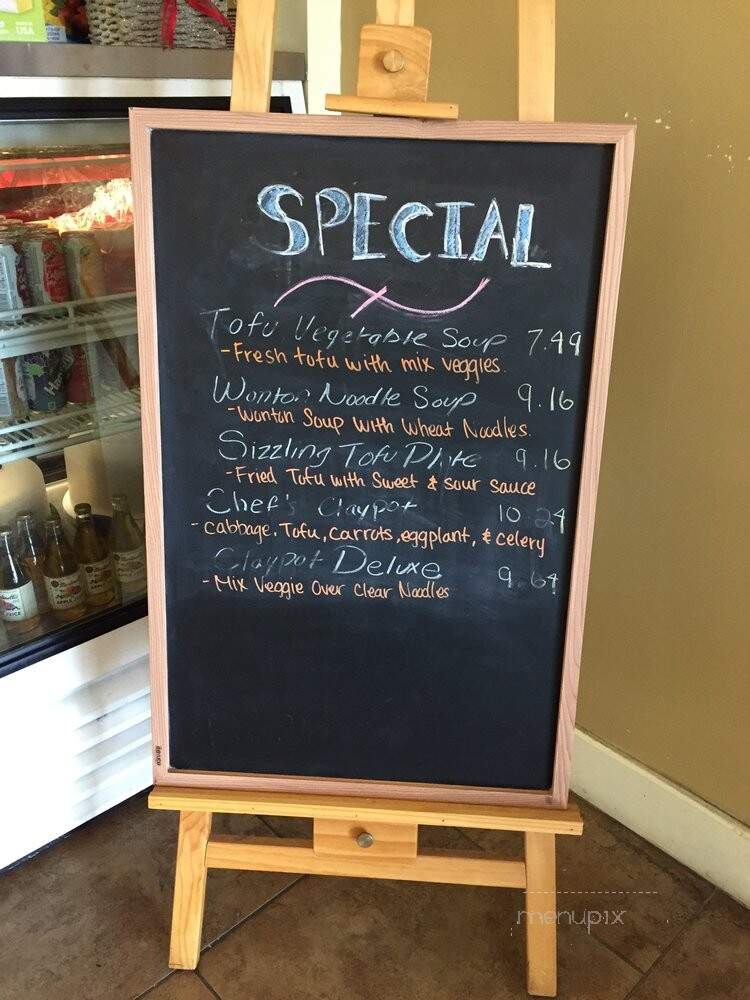 SPECIAL
Tofu Vegetable Soup 7.49
-Fresh tofu with mix veggies.
Wonton Noodle Soup 9.16
-Wonton Soup with Wheat Noodles.
Sizzling Tofu Plate 9.16
-Fried Tofu with Sweet & sour sauce
Chef's Claypot 10.24
-cabbage, Tofu, carrots, eggplant, & celery
Claypot Deluxe 9.64
-Mix Veggie Over Clear Noodles
menupix
USA